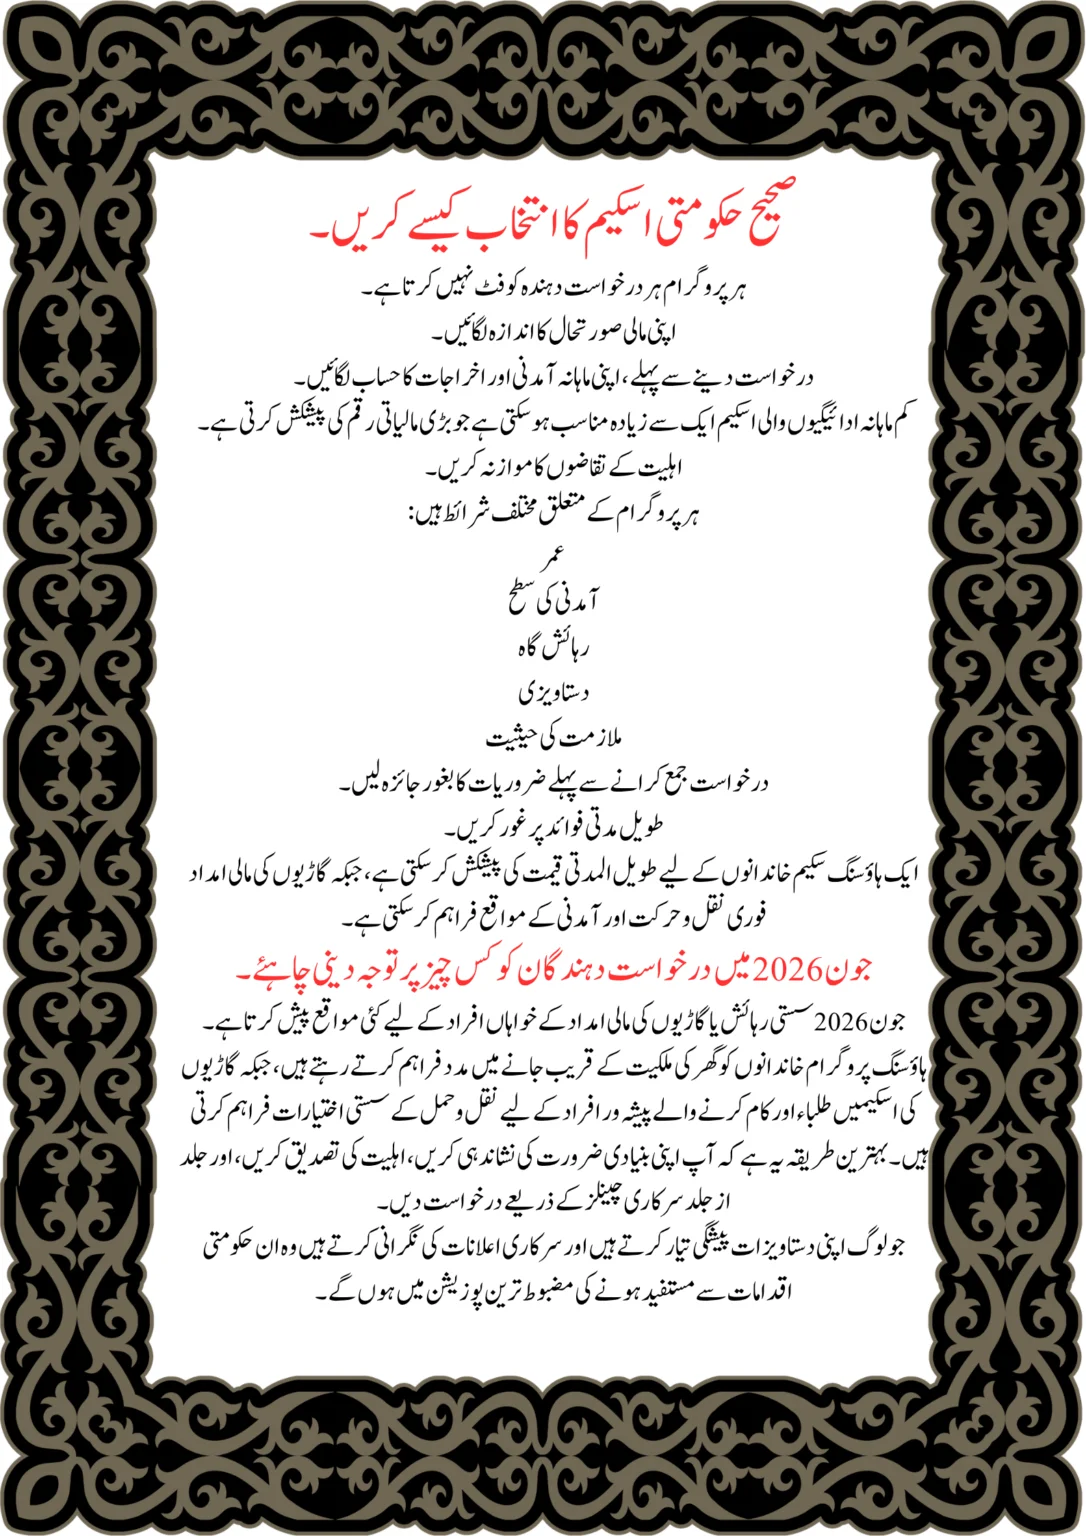 صحیح حکومتی اسکیم کا انتخاب کیسے کریں۔
ہر پروگرام ہر درخواست دہندہ کو فٹ نہیں کرتا ہے۔
اپنی مالی صورتحال کا اندازہ لگائیں۔
درخواست دینے سے پہلے، اپنی ماہانہ آمدنی اور اخراجات کا حساب لگائیں۔
کم ماہانہ ادائیگیوں والی اسکیم ایک سے زیادہ مناسب ہو سکتی ہے جو بڑی مالیاتی رقم کی پیشکش کرتی ہے۔
اہلیت کے تقاضوں کا موازنہ کریں۔
ہر پروگرام کے متعلق مختلف شرائط ہیں:
عمر
آمدنی کی سطح
رہائش گاہ
دستاویزی
ملازمت کی حیثیت
درخواست جمع کرانے سے پہلے ضروریات کا بغور جائزہ لیں۔
طویل مدتی فوائد پر غور کریں۔
ایک ہاؤسنگ سکیم خاندانوں کے لیے طویل المدتی قیمت کی پیشکش کر سکتی ہے، جبکہ گاڑیوں کی مالی امداد
فوری نقل و حرکت اور آمدنی کے مواقع فراہم کر سکتی ہے۔
جون 2026 میں درخواست دہندگان کو کس چیز پر توجہ دینی چاہئے۔
جون 2026 سستی رہائش یا گاڑیوں کی مالی امداد کے خواہاں افراد کے لیے کئی مواقع پیش کرتا ہے۔
ہاؤسنگ پروگرام خاندانوں کو گھر کی ملکیت کے قریب جانے میں مدد فراہم کرتے رہتے ہیں، جبکہ گاڑیوں
کی اسکیمیں طلباء اور کام کرنے والے پیشہ ور افراد کے لیے نقل و حمل کے سستی اختیارات فراہم کرتی
ہیں۔ بہترین طریقہ یہ ہے کہ آپ اپنی بنیادی ضرورت کی نشاندہی کریں، اہلیت کی تصدیق کریں، اور جلد
از جلد سرکاری چینلز کے ذریعے درخواست دیں۔
جو لوگ اپنی دستاویزات پیشگی تیار کرتے ہیں اور سرکاری اعلانات کی نگرانی کرتے ہیں وہ ان حکومتی
اقدامات سے مستفید ہونے کی مضبوط ترین پوزیشن میں ہوں گے۔